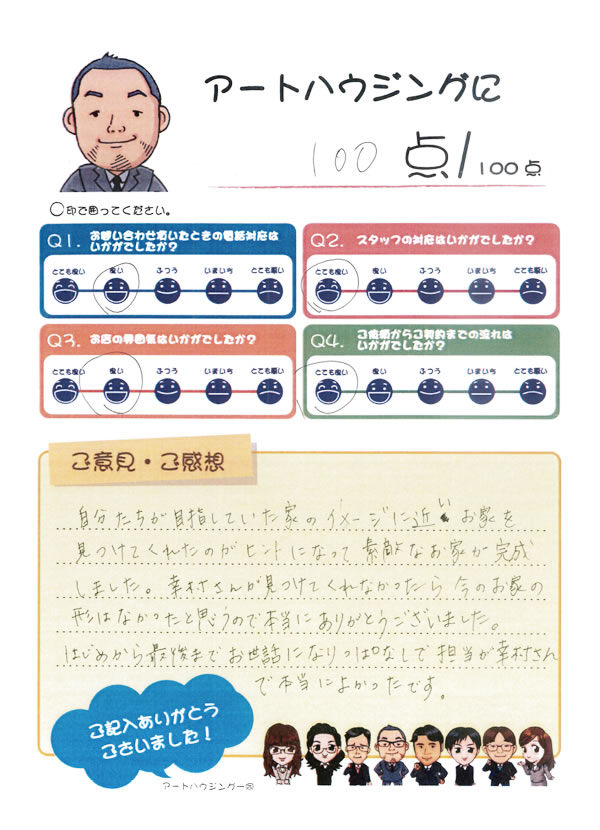 アートハウジングに
100 点/100点
○印で囲ってください。
Q1. お問い合わせ頂いたときの電話対応は
いかがでしたか？
とても良い 良い ふつう いまいち とても悪い
Q2. スタッフの対応はいかがでしたか？
とても良い 良い ふつう いまいち とても悪い
Q3. お店の雰囲気はいかがでしたか？
とても良い 良い ふつう いまいち とても悪い
Q4. ご依頼からご契約までの流れは
いかがでしたか？
とても良い 良い ふつう いまいち とても悪い
ご意見・ご感想
自分たちが目指していた家のイメージに近い お家を
見つけてくれたのがヒントになって 素敵なお家が完成
しました。幸村さんが見つけてくれなかったら 今のお家の
形はなかったと思うので本当にありがとうございました。
はじめから最後まで お世話になりっぱなしで 担当が幸村さん
で本当によかったです。
ご記入ありがとう
ございました！
アートハウジング一同